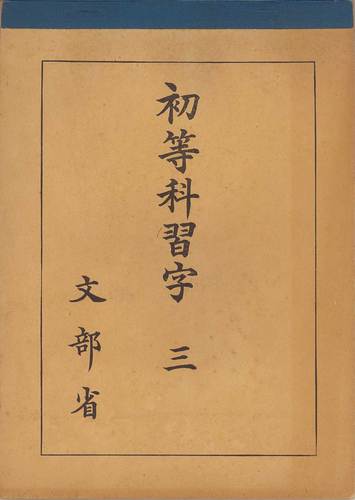 初等科習字 三
文部省